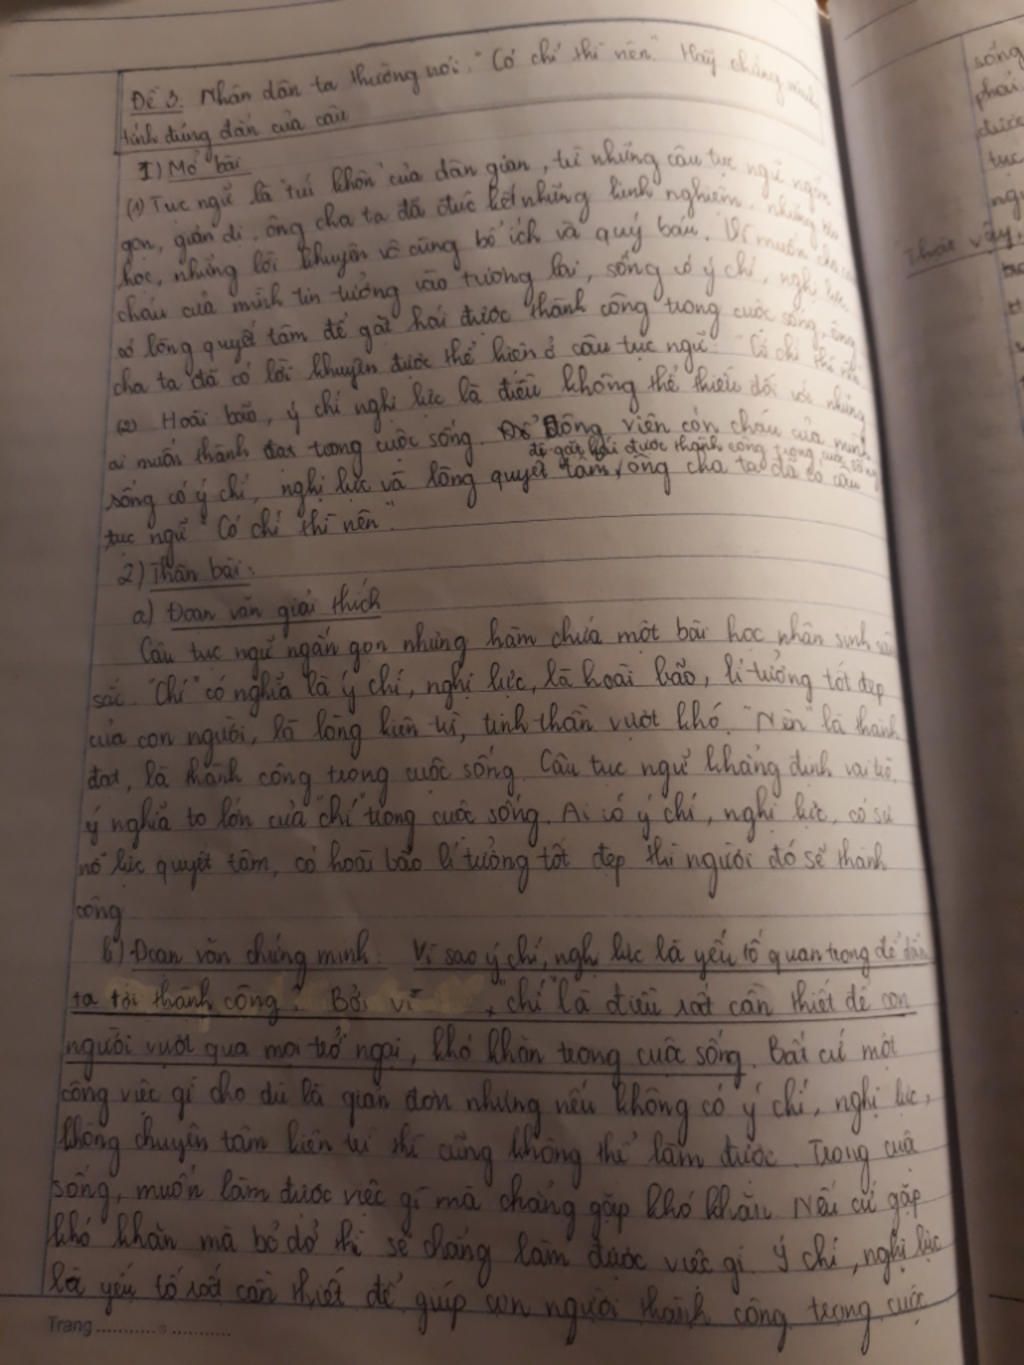 Đề 3. Nhân dân ta thường nói: "Có chí thì nên". Hãy chứng minh
tính đúng đắn của câu
I) Mở bài
(1) Tục ngữ là túi khôn của dân gian, từ những câu tục ngữ ngắn
gọn, giản dị, ông cha ta đã đúc kết những kinh nghiệm, những bài
học, những lời khuyên vô cùng bổ ích và quý báu. Vì muốn con
cháu của mình tin tưởng vào tương lai, sống có ý chí, nghị lực
có lòng quyết tâm để gặt hái được thành công trong cuộc sống, ông
cha ta đã có lời khuyên được thể hiện ở câu tục ngữ: "Có chí thì nên
(2) Hoài bão, ý chí nghị lực là điều không thể thiếu đối với những
ai muốn thành đạt trong cuộc sống. Để động viên con cháu của mình
để gặt hái được thành công trong cuộc sống
sống có ý chí, nghị lực và lòng quyết tâm, ông cha ta đã có câu
tục ngữ "Có chí thì nên".
2) Thân bài:
a) Đoạn văn giải thích
Câu tục ngữ ngắn gọn nhưng hàm chứa một bài học nhân sinh sâu
sắc. "Chí" có nghĩa là ý chí, nghị lực, là hoài bão, lí tưởng tốt đẹp
của con người, là lòng kiên trì, tinh thần vượt khó. "Nên" là thành
đạt, là thành công trong cuộc sống. Câu tục ngữ khẳng định vai trò,
ý nghĩa to lớn của "chí" trong cuộc sống. Ai có ý chí, nghị lực, có sự
nỗ lực quyết tâm, có hoài bão lí tưởng tốt đẹp thì người đó sẽ thành
công
b) Đoạn văn chứng minh: Vì sao ý chí, nghị lực là yếu tố quan trọng để dẫn
ta tới thành công? Bởi vì, "chí" là điều rất cần thiết để con
người vượt qua mọi trở ngại, khó khăn trong cuộc sống. Bất cứ một
công việc gì cho dù là giản đơn nhưng nếu không có ý chí, nghị lực,
không chuyên tâm kiên trì thì cũng không thể làm được. Trong cuộc
sống, muốn làm được việc gì mà chẳng gặp khó khăn. Nếu cứ gặp
khó khăn mà bỏ dở thì sẽ chẳng làm được việc gì. Ý chí, nghị lực
là yếu tố rất cần thiết để giúp con người thành công trong cuộc
Trang
sống
phải
được
tục
Thật vậy,